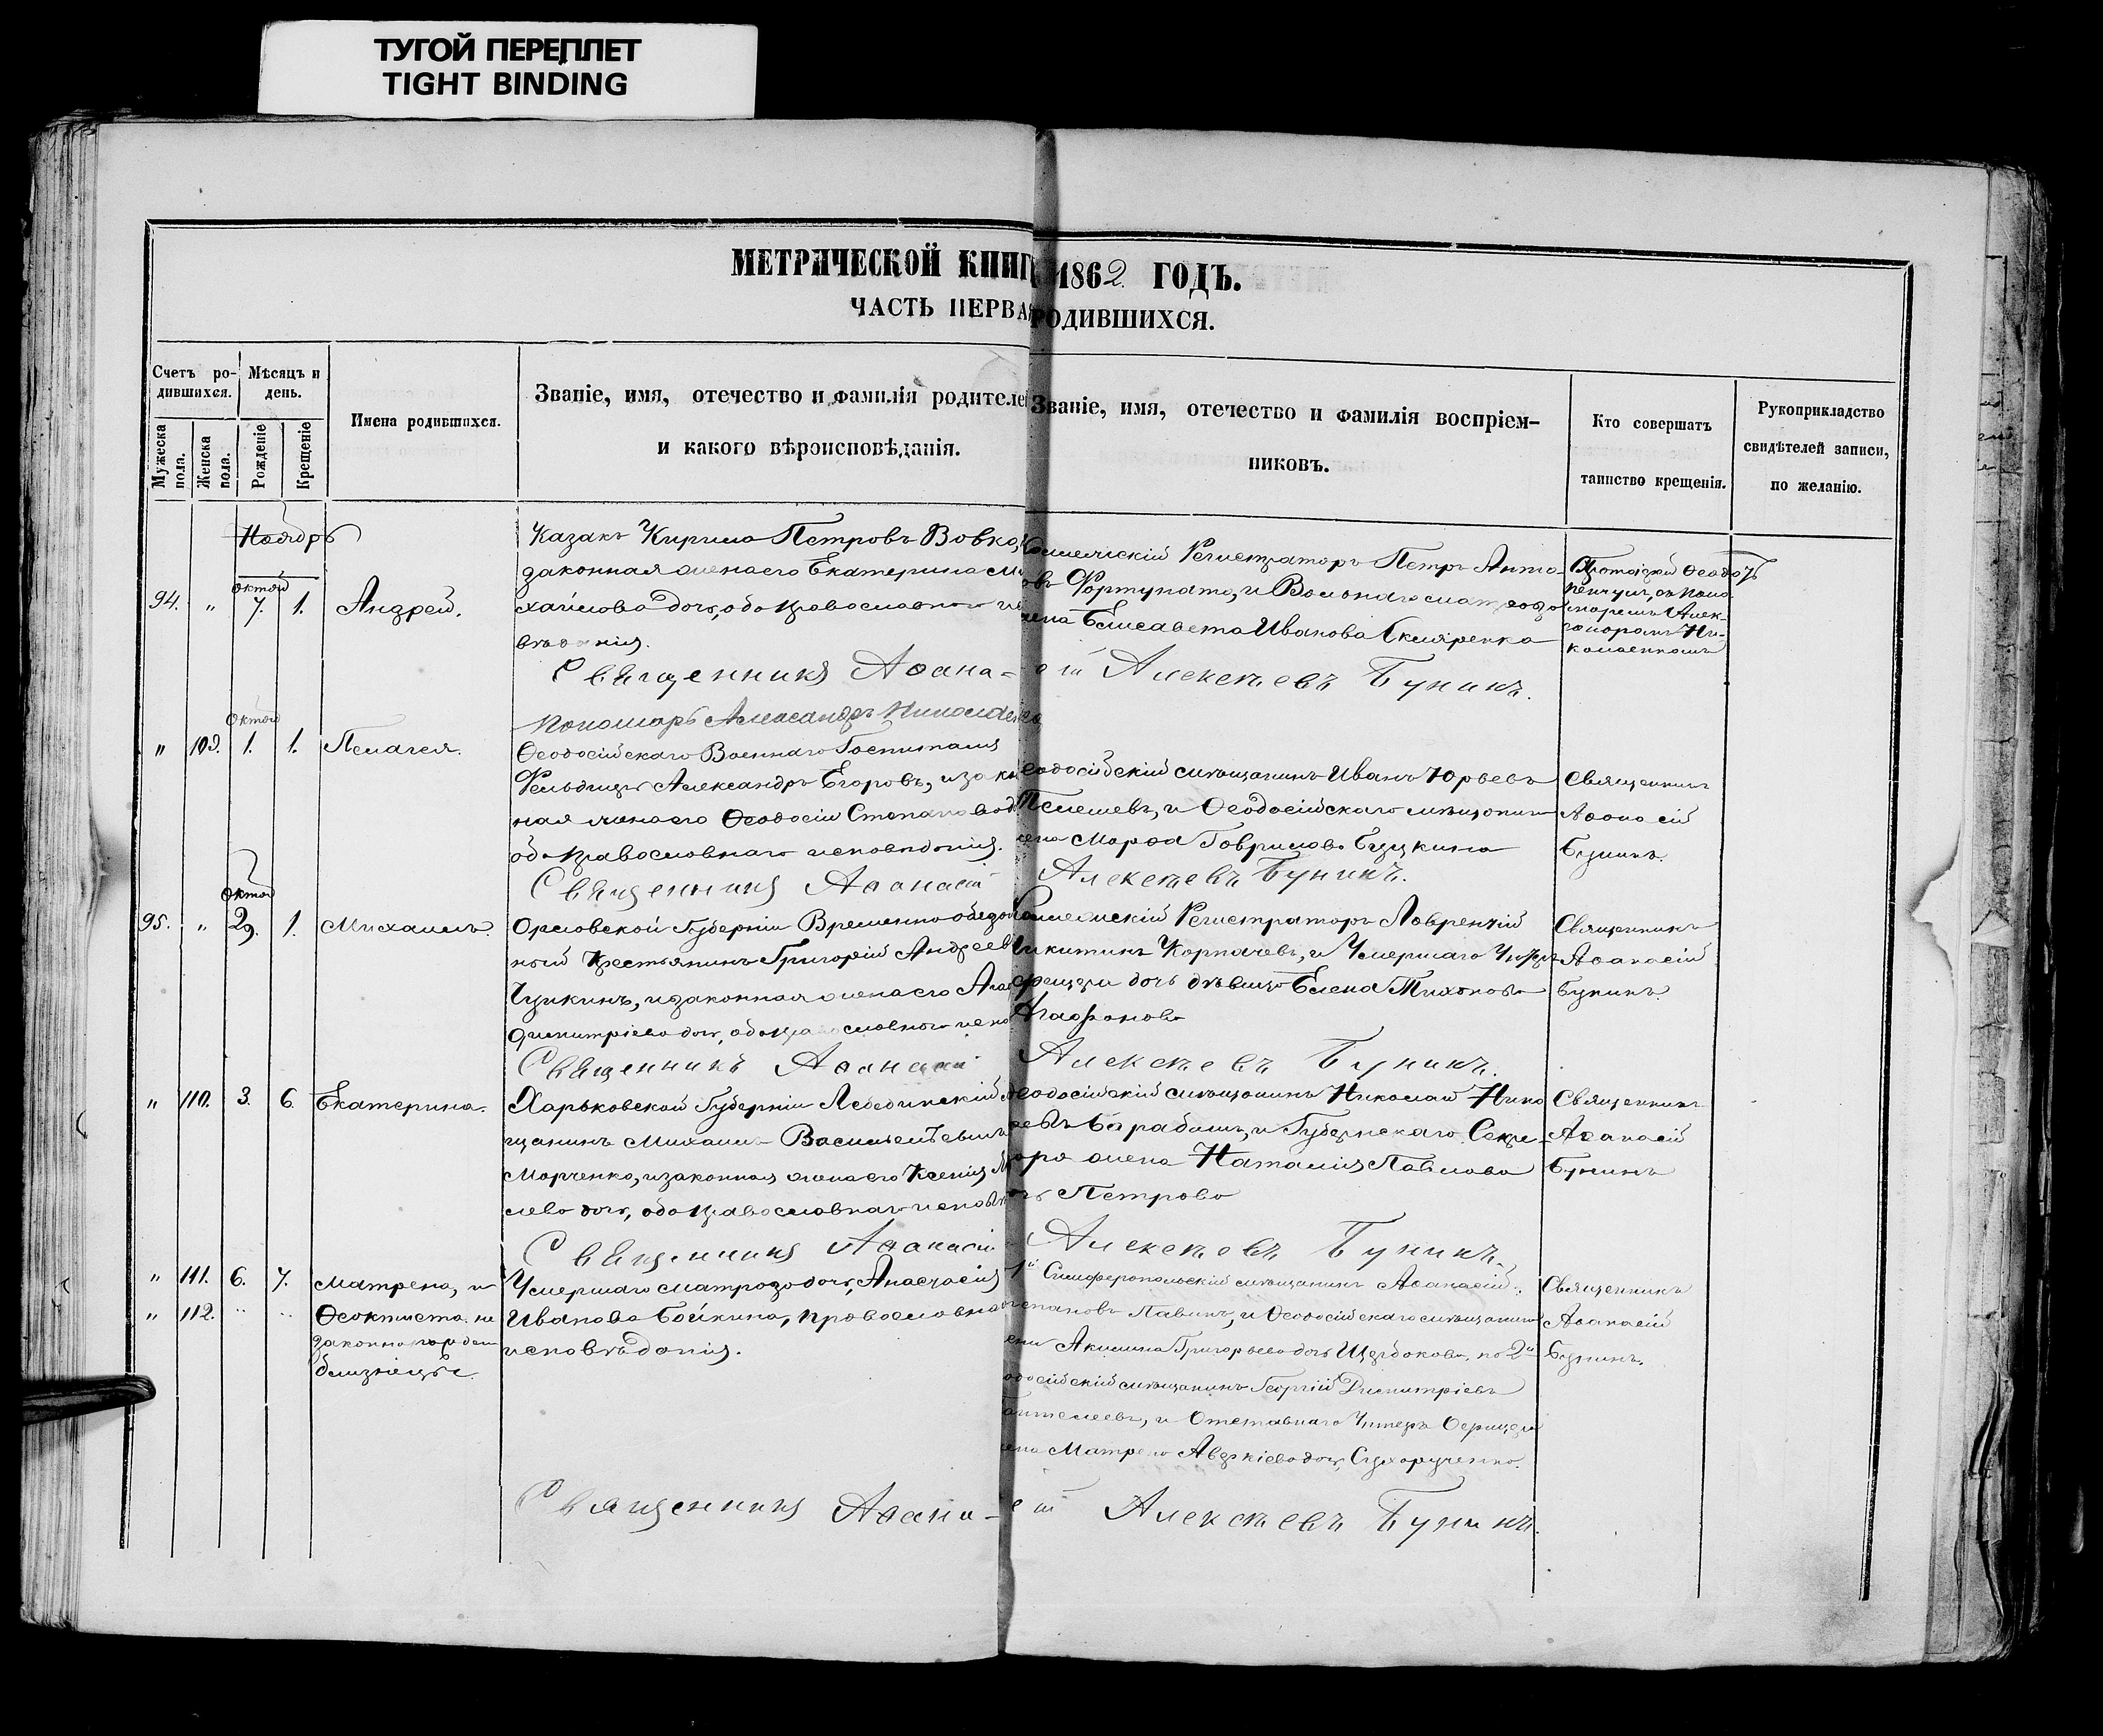 ТУГОЙ ПЕРЕПЛЕТ
TIGHT BINDING
МЕТРИЧЕСКОЙ КНИГ
1862 ГОДЪ.
ЧАСТЬ ПЕРВАЯ
РОДИВШИХСЯ.
Счетъ ро-
дившихся.
Мѣсяцъ и
день.
Мужеска
пола.
Женска
пола.
Рожденіе
Крещеніе
Имена родившихся.
Званіе, имя, отечество и фамилія родителе
и какого вѣроисповѣданія.
Званіе, имя, отечество и фамилія воспріем-
никовъ.
Кто совершатъ
таинство крещенія.
Рукоприкладство
свидѣтелей записи,
по желанію.
Ноябрь
94. " октяб 7. 1. Андрей.
Казакъ Кирило Петровъ Вовко,
законная жена его Екатерина Ми
хайлова дочь, оба православнаго испо
вѣданія.
Регистраторъ Петръ Анто
овъ Фортунато, и
жена Елисавета Иванова Скляренко
Протоіерей
Алек-
Ни-
Священникъ Аѳана- сій Алексѣевъ Бунинъ.
Пономарь Александръ
" 109. октяб 1. 1. Пелагея.
Ѳеодосійскаго Военнаго Госпиталя
Фельдшеръ Александръ Егоровъ, и закон
ная жена его Ѳеодосія Степанова д.
оба православнаго исповѣданія.
еодосійскій мѣщанинъ Иванъ Юрьевъ
и Ѳеодосійскаго мѣщанина
жена Марѳа Гаврилова
Священникъ
Аѳанасій
Бунинъ.
Священникъ Аѳанасій Алексѣевъ Бунинъ.
95. " октяб 29. 1. Михаилъ.
Орловской Губерніи Временно-обязан
ный Крестьянинъ Григорій Андреевъ
и законная жена его Ага
Димитріева дочь, оба православнаго испо
Регистраторъ Лаврентій
Никитинъ Корпачевъ, и Умершаго Унтеръ
офицера дочь дѣвица Елена Тихонова
Агафонова
Священникъ
Аѳанасій
Бунинъ.
Священникъ Аѳанасій Алексѣевъ Бунинъ.
" 110. 3. 6. Екатерина.
Харьковской Губерніи Лебединскій
щанинъ Михаилъ Васильевъ
Марченко, и законная жена его Ксенія
лева дочь, оба православнаго исповѣ
еодосійскій мѣщанинъ Николай Нико
аевъ Барабашъ, и Губернскаго Секре-
таря жена Наталія Павлова
очь Петрова
Священникъ
Аѳанасій
Бунинъ
Священникъ Аѳанасій Алексѣевъ Бунинъ.
" 111. 6. 7. Матрена, и
" 112. " " Ѳеоктиста не
законнорожден
близнецы.
Умершаго матроза дочь, Анастасія
Иванова Бойкина, православнаго
исповѣданія.
1й Симферопольскій мѣщанинъ Аѳанасій
тепановъ Павинъ, и Ѳеодосійскаго мѣщанина
ена Акилина Григорьева дочь Щербакова, по 2й
одосійскій мѣщанинъ Георгій Димитріевъ
антелеевъ, и Отставнаго Унтеръ Офицера
ена Матрена дочь, Сухорученко.
Священникъ
Аѳанасій
Бунинъ.
Священникъ Аѳана- сій Алексѣевъ Бунинъ.